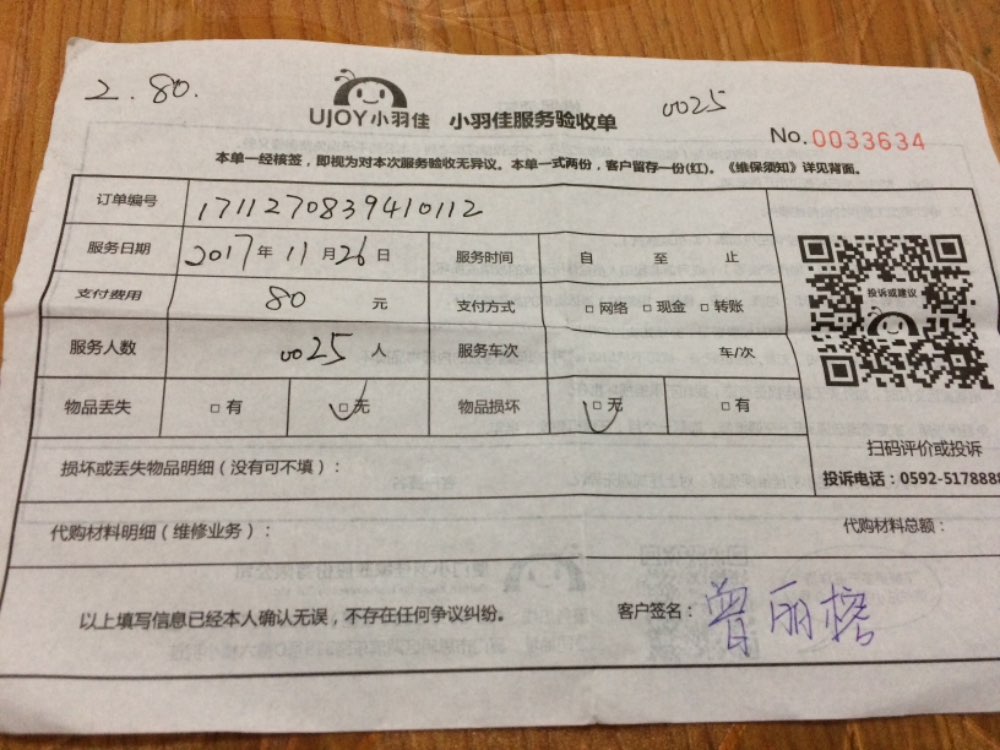 2.80.
0025
UJOY小羽佳 小羽佳服务验收单
No.0033634
本单一经核签，即视为对本次服务验收无异议。本单一式两份，客户留存一份(红)。《维保须知》详见背面。
订单编号 1711270839410112
服务日期 2017年11月26日 服务时间 自 至 止
支付费用 80 元 支付方式 □网络 □现金 □转账
投诉或建议
服务人数 0025 人 服务车次 车/次
物品丢失 □有 □无 物品损坏 □无 □有
扫码评价或投诉
损坏或丢失物品明细（没有可不填）：
投诉电话：0592-5178888
代购材料明细（维修业务）： 代购材料总额：
以上填写信息已经本人确认无误，不存在任何争议纠纷。 客户签名：曾丽榕